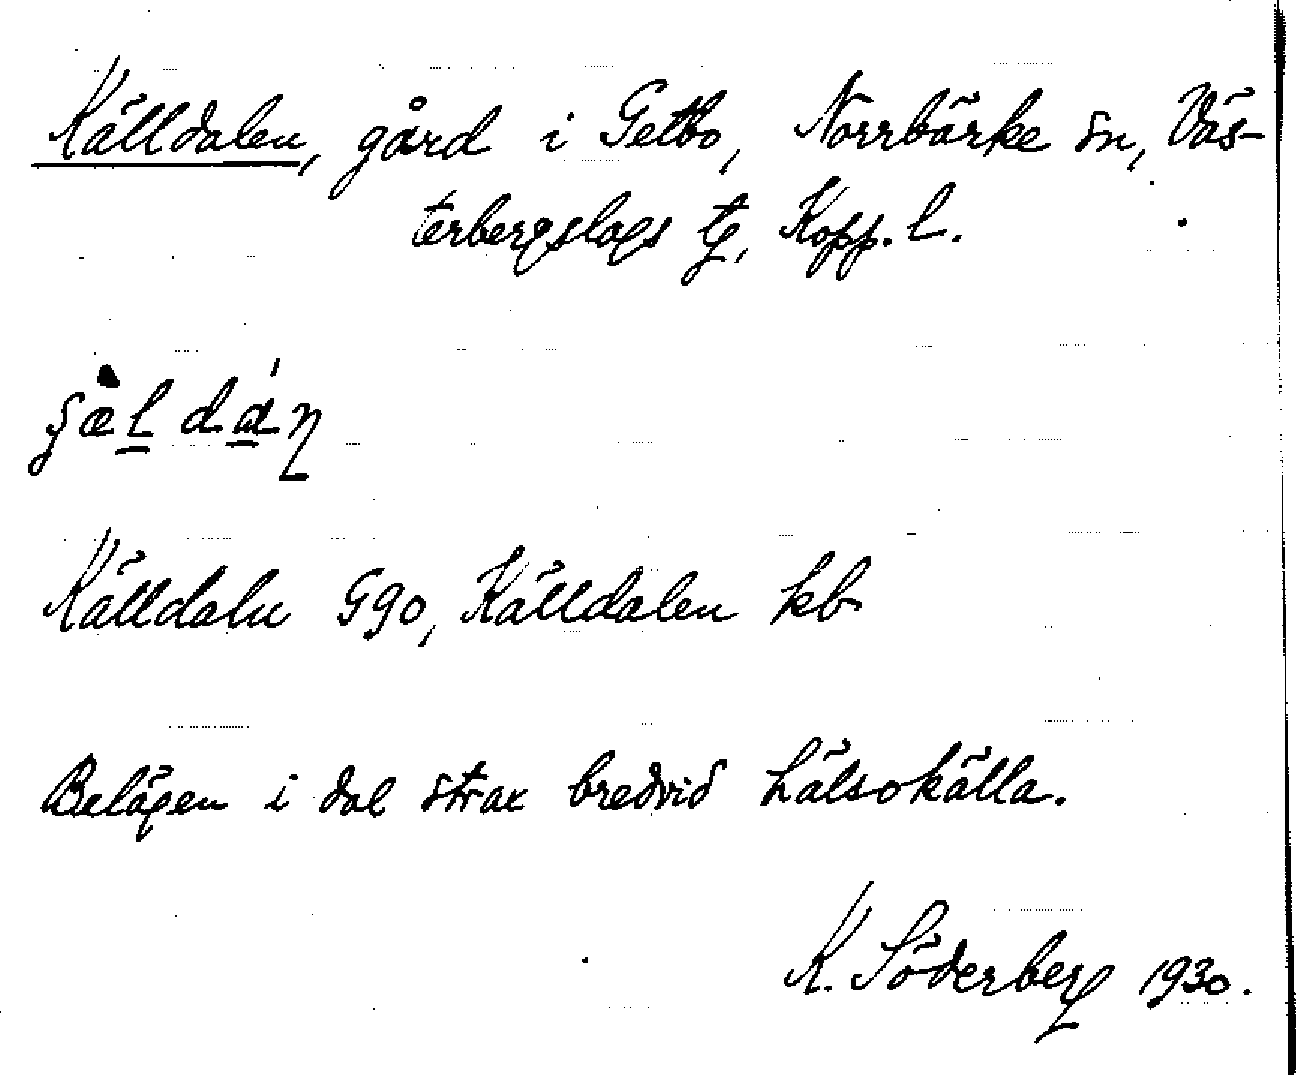 Källdalen, gård i Getbo, Norrbärke sn, Väs-
terbergslags tg, Kopp. l.
Källdalen G90, Källdalen kb
Belägen i dal strax bredvid hälsokälla.
K. Söderberg 1930.